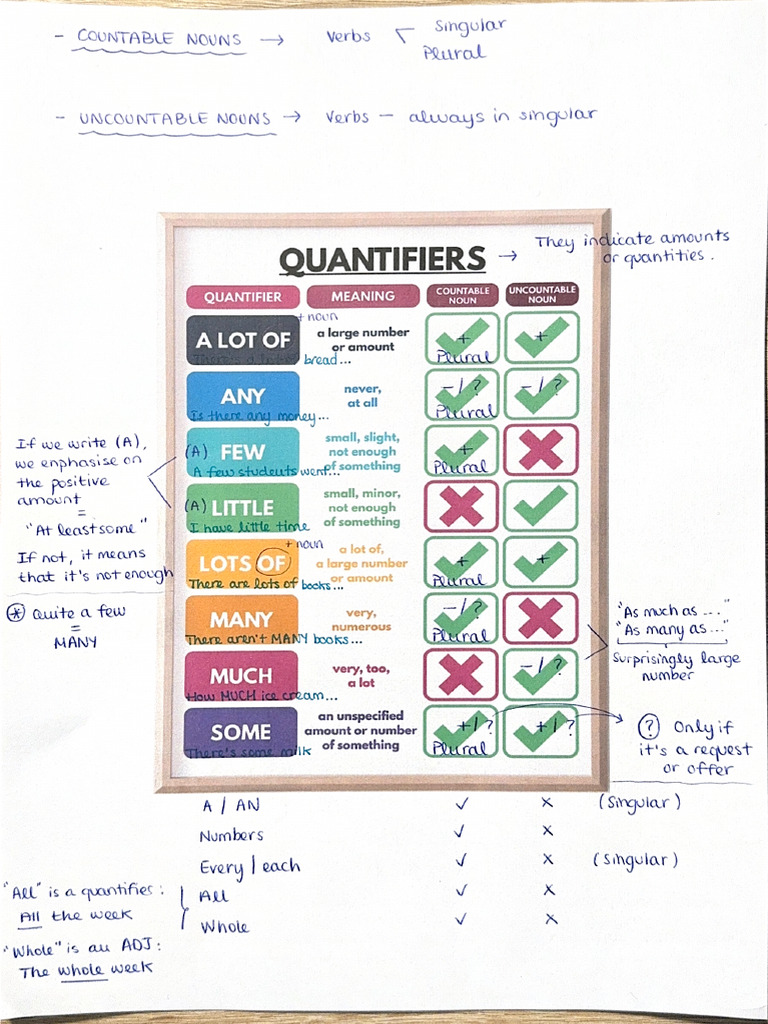 - COUNTABLE NOUNS → Verbs
Singular
Plural
- UNCOUNTABLE NOUNS → Verbs - always in singular
QUANTIFIERS → They indicate amounts
or quantities.
QUANTIFIER MEANING COUNTABLE NOUN UNCOUNTABLE NOUN
A LOT OF + noun
a large number
or amount
+ Plural
+
There's a lot of bread...
ANY
never,
at all
-/? Plural
-/?
Is there any money...
(A) FEW
small, slight,
not enough
of something
+ Plural
A few students went...
(A) LITTLE
small, minor,
not enough
of something
I have little time
LOTS OF + noun
a lot of,
a large number
or amount
+ Plural
+
There are lots of books...
MANY
very,
numerous
-/? Plural
There aren't MANY books...
MUCH
very, too,
a lot
-/?
How MUCH ice cream...
SOME
an unspecified
amount or number
of something
+/? Plural
+/?
There's some milk
If we write (A),
we enphasise on
the positive
amount
=
"At least some"
If not, it means
that it's not enough
* Quite a few
=
MANY
"As much as ..."
"As many as..."
Surprisingly large
number
? Only if
it's a request
or offer
A / AN ✓ x (Singular)
Numbers ✓ x
Every / each ✓ x (Singular)
All ✓ x
Whole ✓ x
"All" is a quantifier:
All the week
"Whole" is an ADJ:
The whole week